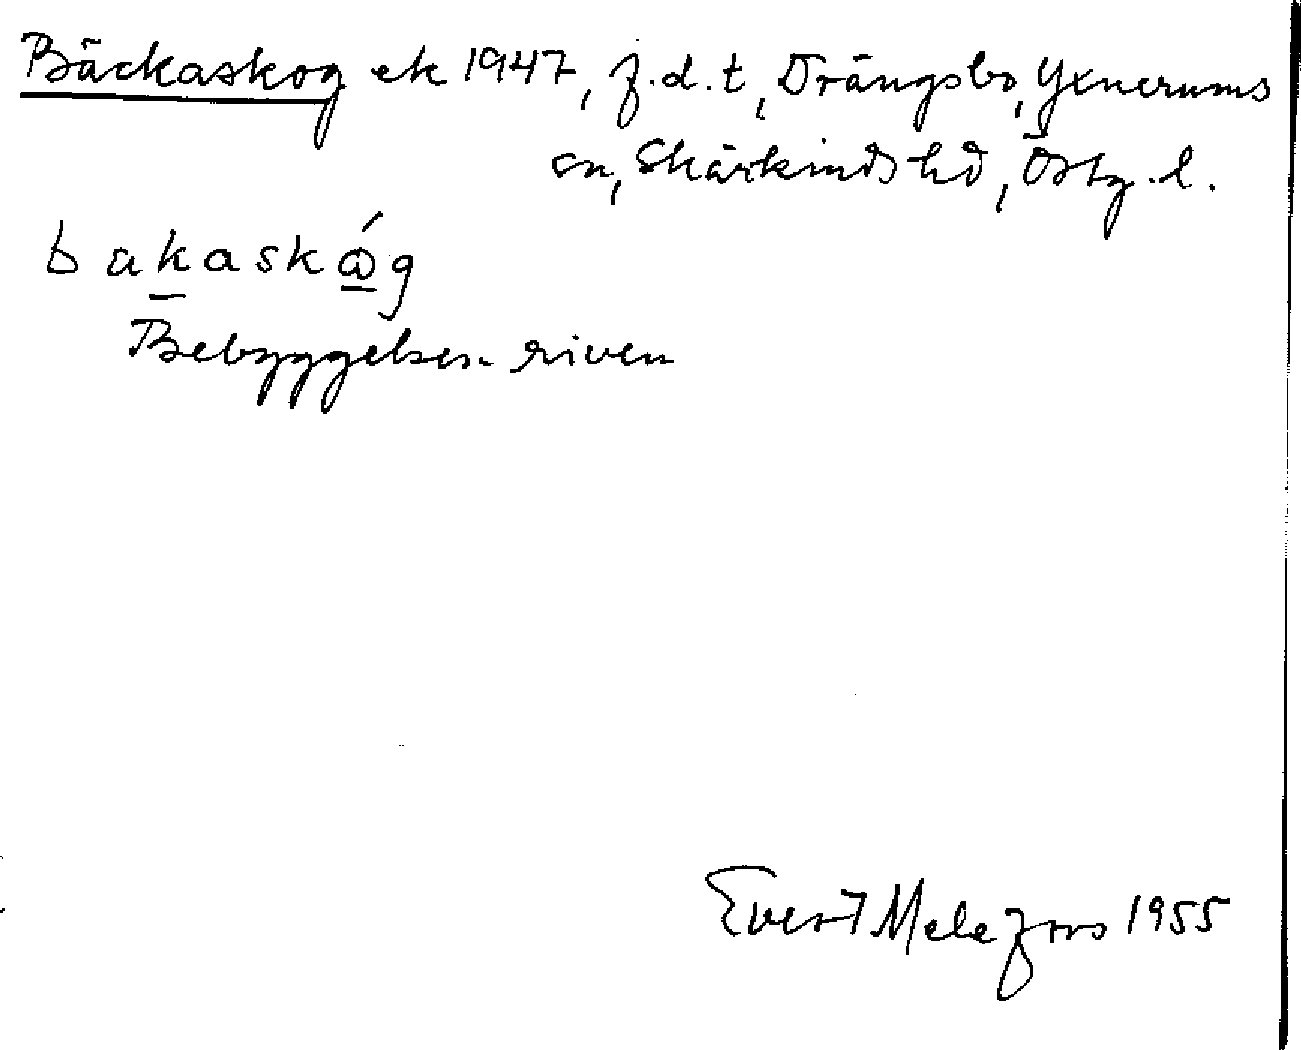 Bäckaskog ek 1947, f.d.t, Drängsbo, Yxnerums
sn, Skärkinds hd, Östg.l.
bakaskǿg
Bebyggelsen riven
Evert Melefors 1955